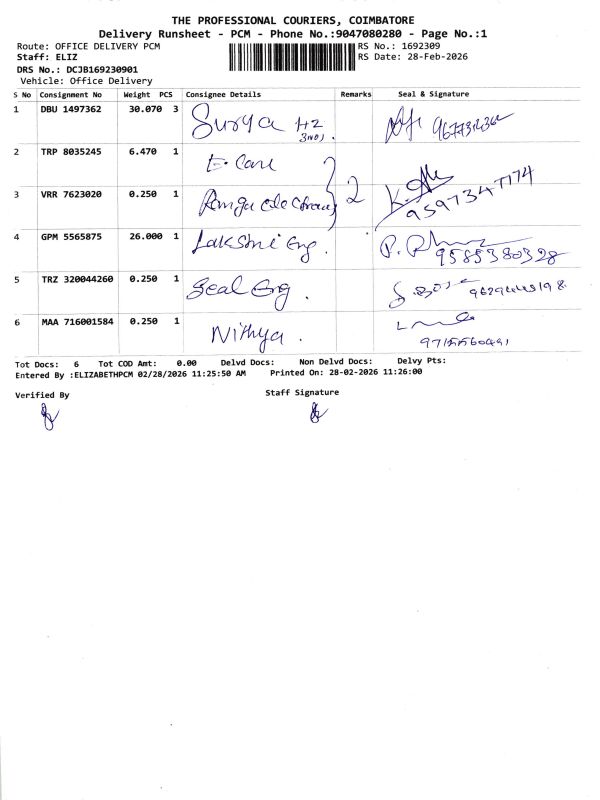 THE PROFESSIONAL COURIERS, COIMBATORE
Delivery Runsheet - PCM - Phone No.:9047080280 - Page No.:1
Route: OFFICE DELIVERY PCM RS No.: 1692309
Staff: ELIZ RS Date: 28-Feb-2026
DRS No.: DCJB169230901
Vehicle: Office Delivery
S No Consignment No Weight PCS Consignee Details Remarks Seal & Signature
1 DBU 1497362 30.070 3 Surya H2
3no).
2 TRP 8035245 6.470 1 E. Care
3 VRR 7623020 0.250 1 2 9597347174
4 GPM 5565875 26.000 1 Lakshmi Eng. 9585380328
5 TRZ 320044260 0.250 1 Seal Eng.
6 MAA 716001584 0.250 1 Nithya.
Tot Docs: 6 Tot COD Amt: 0.00 Delvd Docs: Non Delvd Docs: Delvy Pts:
Entered By :ELIZABETHPCM 02/28/2026 11:25:50 AM Printed On: 28-02-2026 11:26:00
Verified By Staff Signature